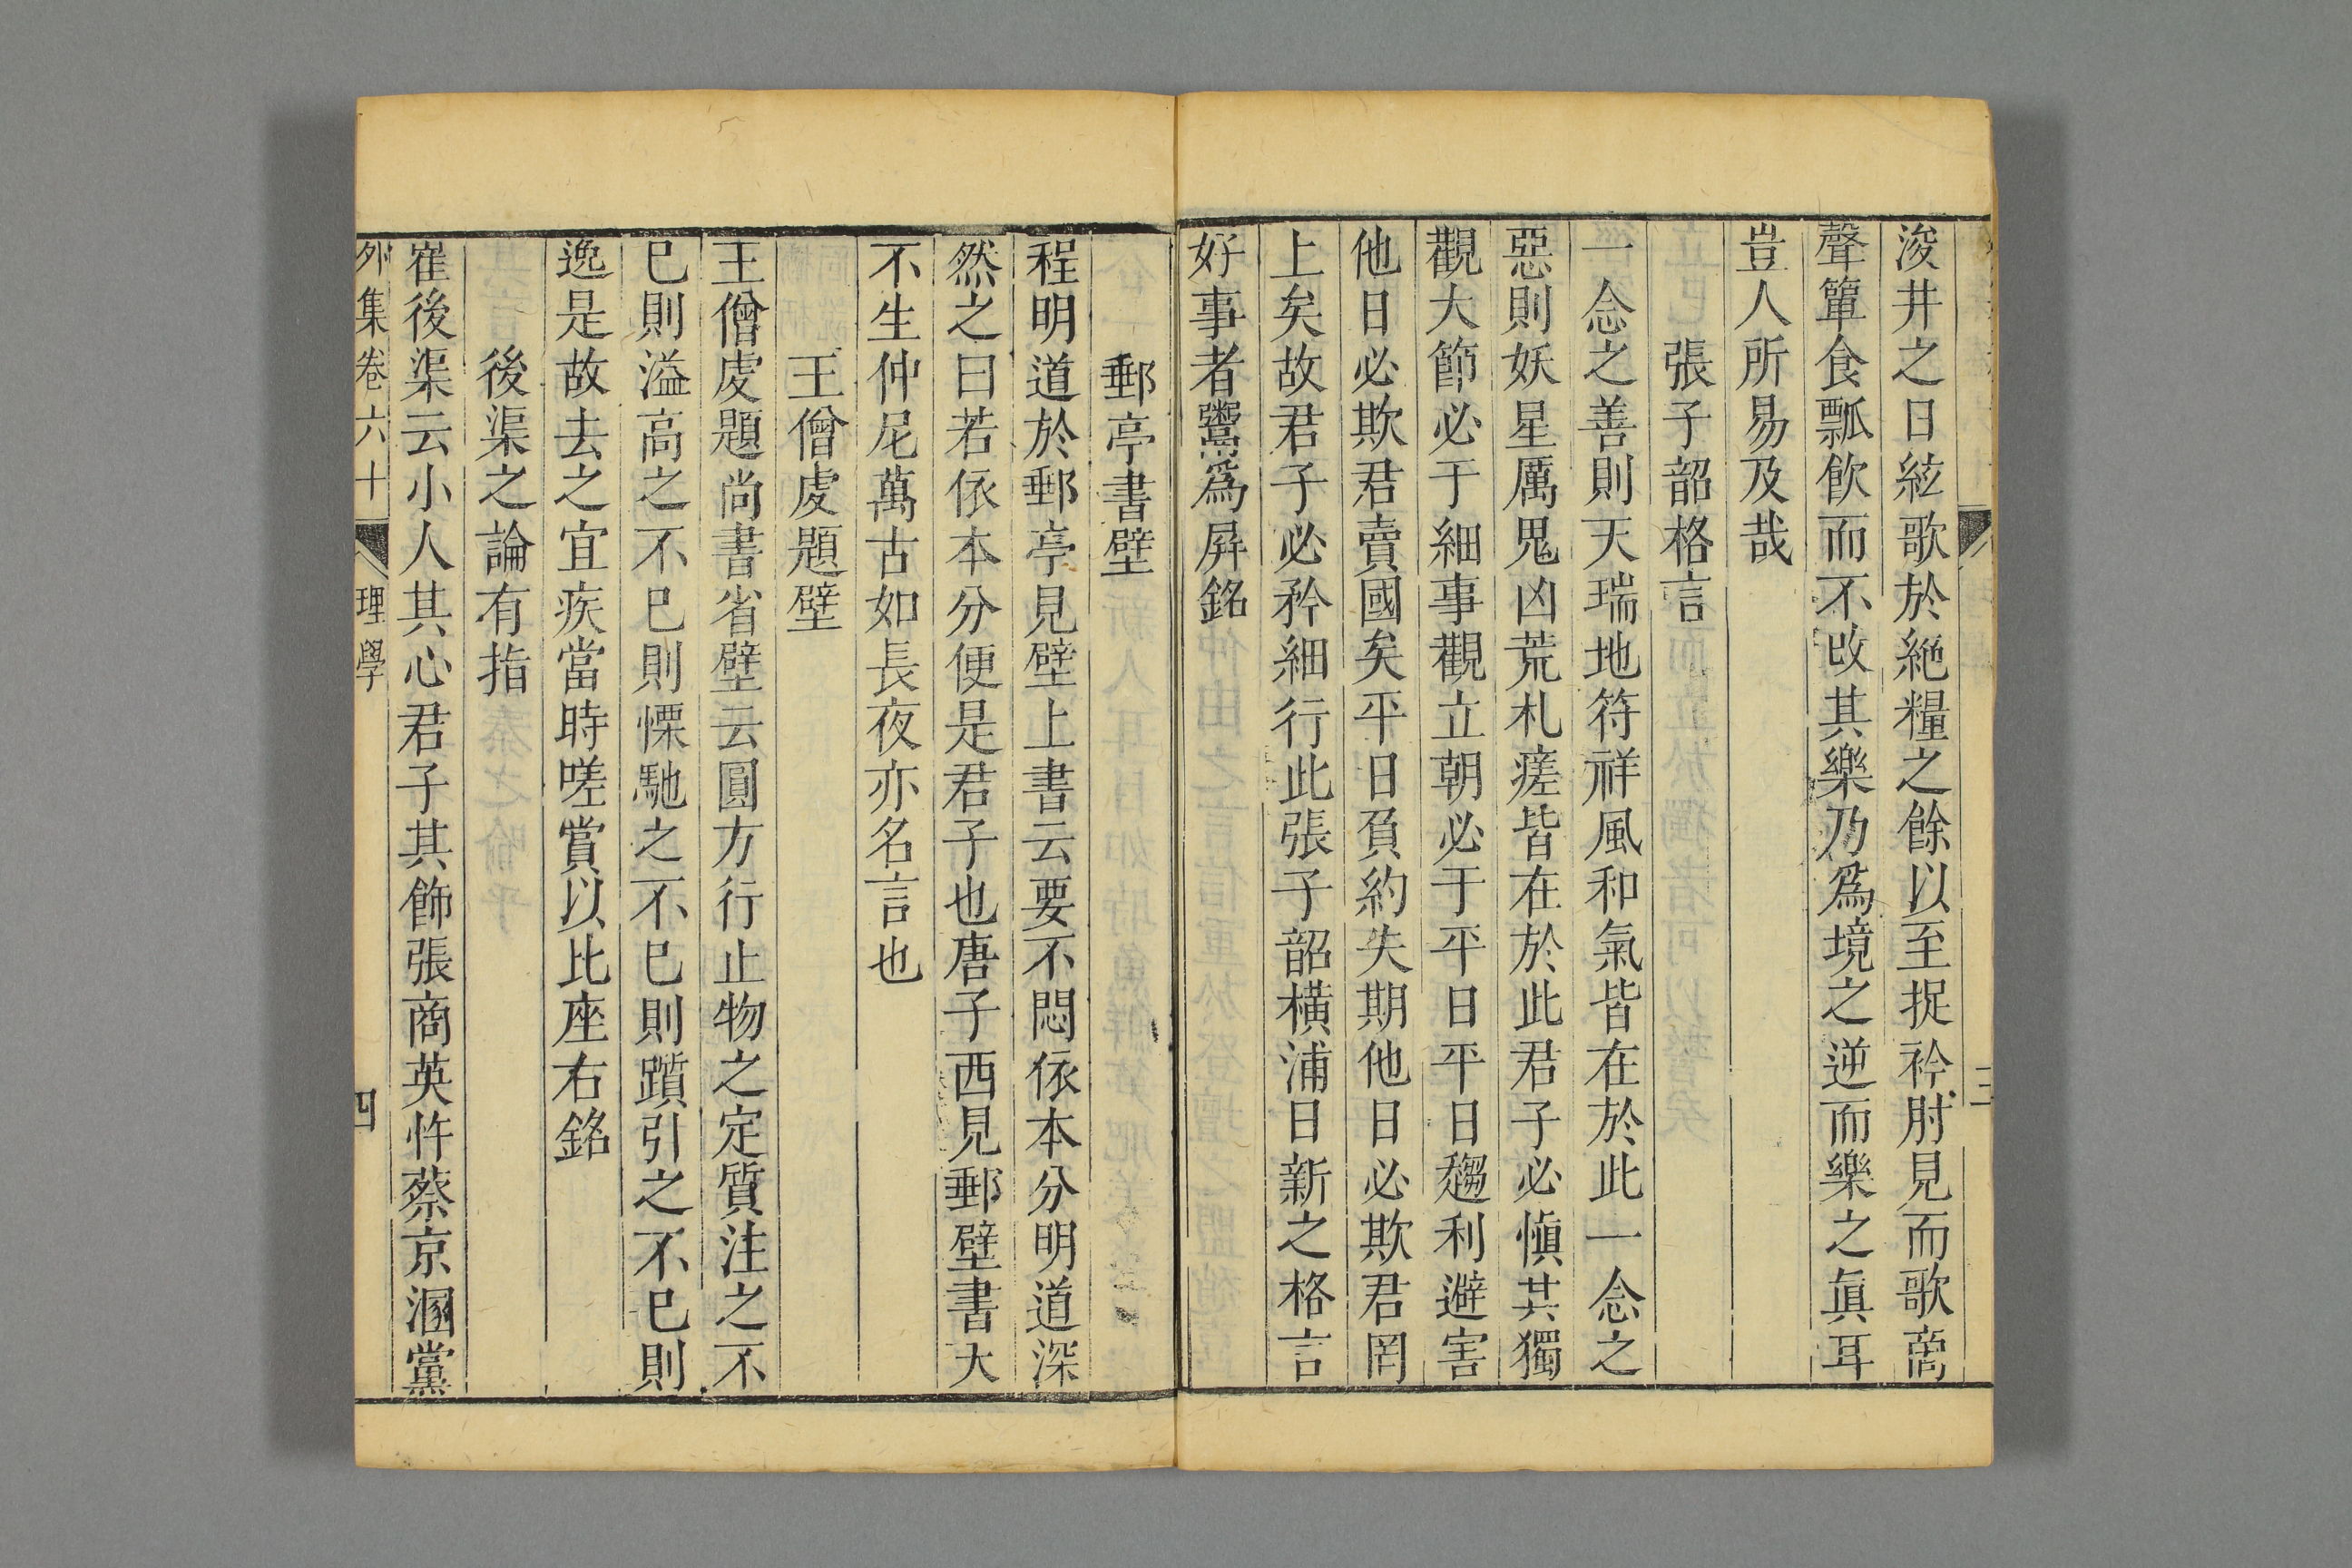 浚井之日絃歌於絶糧之餘以至捉衿肘見而歌商
聲簞食瓢飲而不改其樂乃爲境之逆而樂之眞耳
豈人所易及哉
張子韶格言
一念之善則天瑞地符祥風和氣皆在於此一念之
惡則妖星厲鬼凶荒札瘥皆在於此君子必愼其獨
觀大節必于細事觀立朝必于平日平日趨利避害
他日必欺君賣國矣平日負約失期他日必欺君罔
上矣故君子必矜細行此張子韶橫浦日新之格言
好事者鬻爲屏銘
三
郵亭書壁
程明道於郵亭見壁上書云要不悶依本分明道深
然之曰若依本分便是君子也唐子西見郵壁書大
不生仲尼萬古如長夜亦名言也
王僧虔題壁
王僧虔題尚書省壁云圓方行止物之定質注之不
已則溢高之不已則慄馳之不已則躓引之不已則
逸是故去之宜疾當時嗟賞以比座右銘
後渠之論有指
崔後渠云小人其心君子其飾張商英忤蔡京溷黨
外集卷六十 理學 四